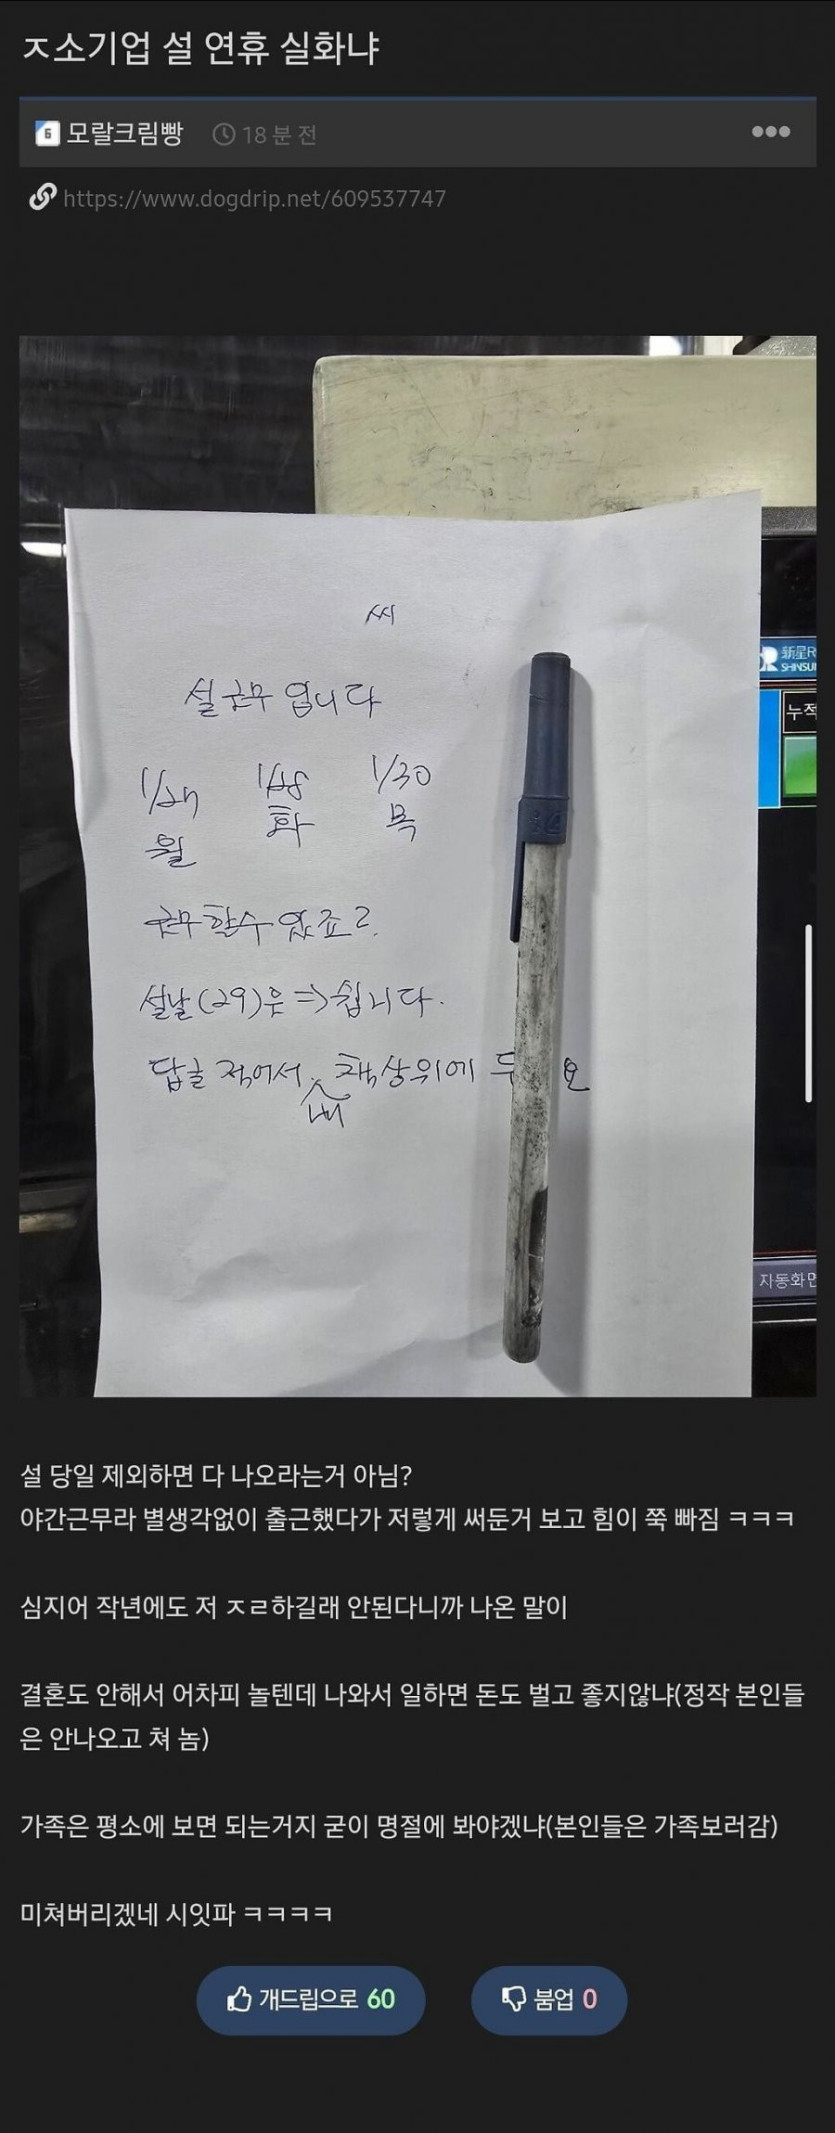 ㅈ소기업 설 연휴 실화냐
6 모랄크림빵 18 분 전
https://www.dogdrip.net/609537747
씨
설 근무 입니다
1/27 1/28 1/30
월 화 목
근무 할수 있죠?
설날(29)은 => 쉽니다.
답을 적어서 책상위에 두 요
내
新星R
SHINSU
누적
자동화면
설 당일 제외하면 다 나오라는거 아님?
야간근무라 별생각없이 출근했다가 저렇게 써둔거 보고 힘이 쭉 빠짐 ㅋㅋㅋ
심지어 작년에도 저 ㅈㄹ하길래 안된다니까 나온 말이
결혼도 안해서 어차피 놀텐데 나와서 일하면 돈도 벌고 좋지않냐(정작 본인들
은 안나오고 쳐 놈)
가족은 평소에 보면 되는거지 굳이 명절에 봐야겠냐(본인들은 가족보러감)
미쳐버리겠네 시잇파 ㅋㅋㅋㅋ
개드립으로 60 붐업 0